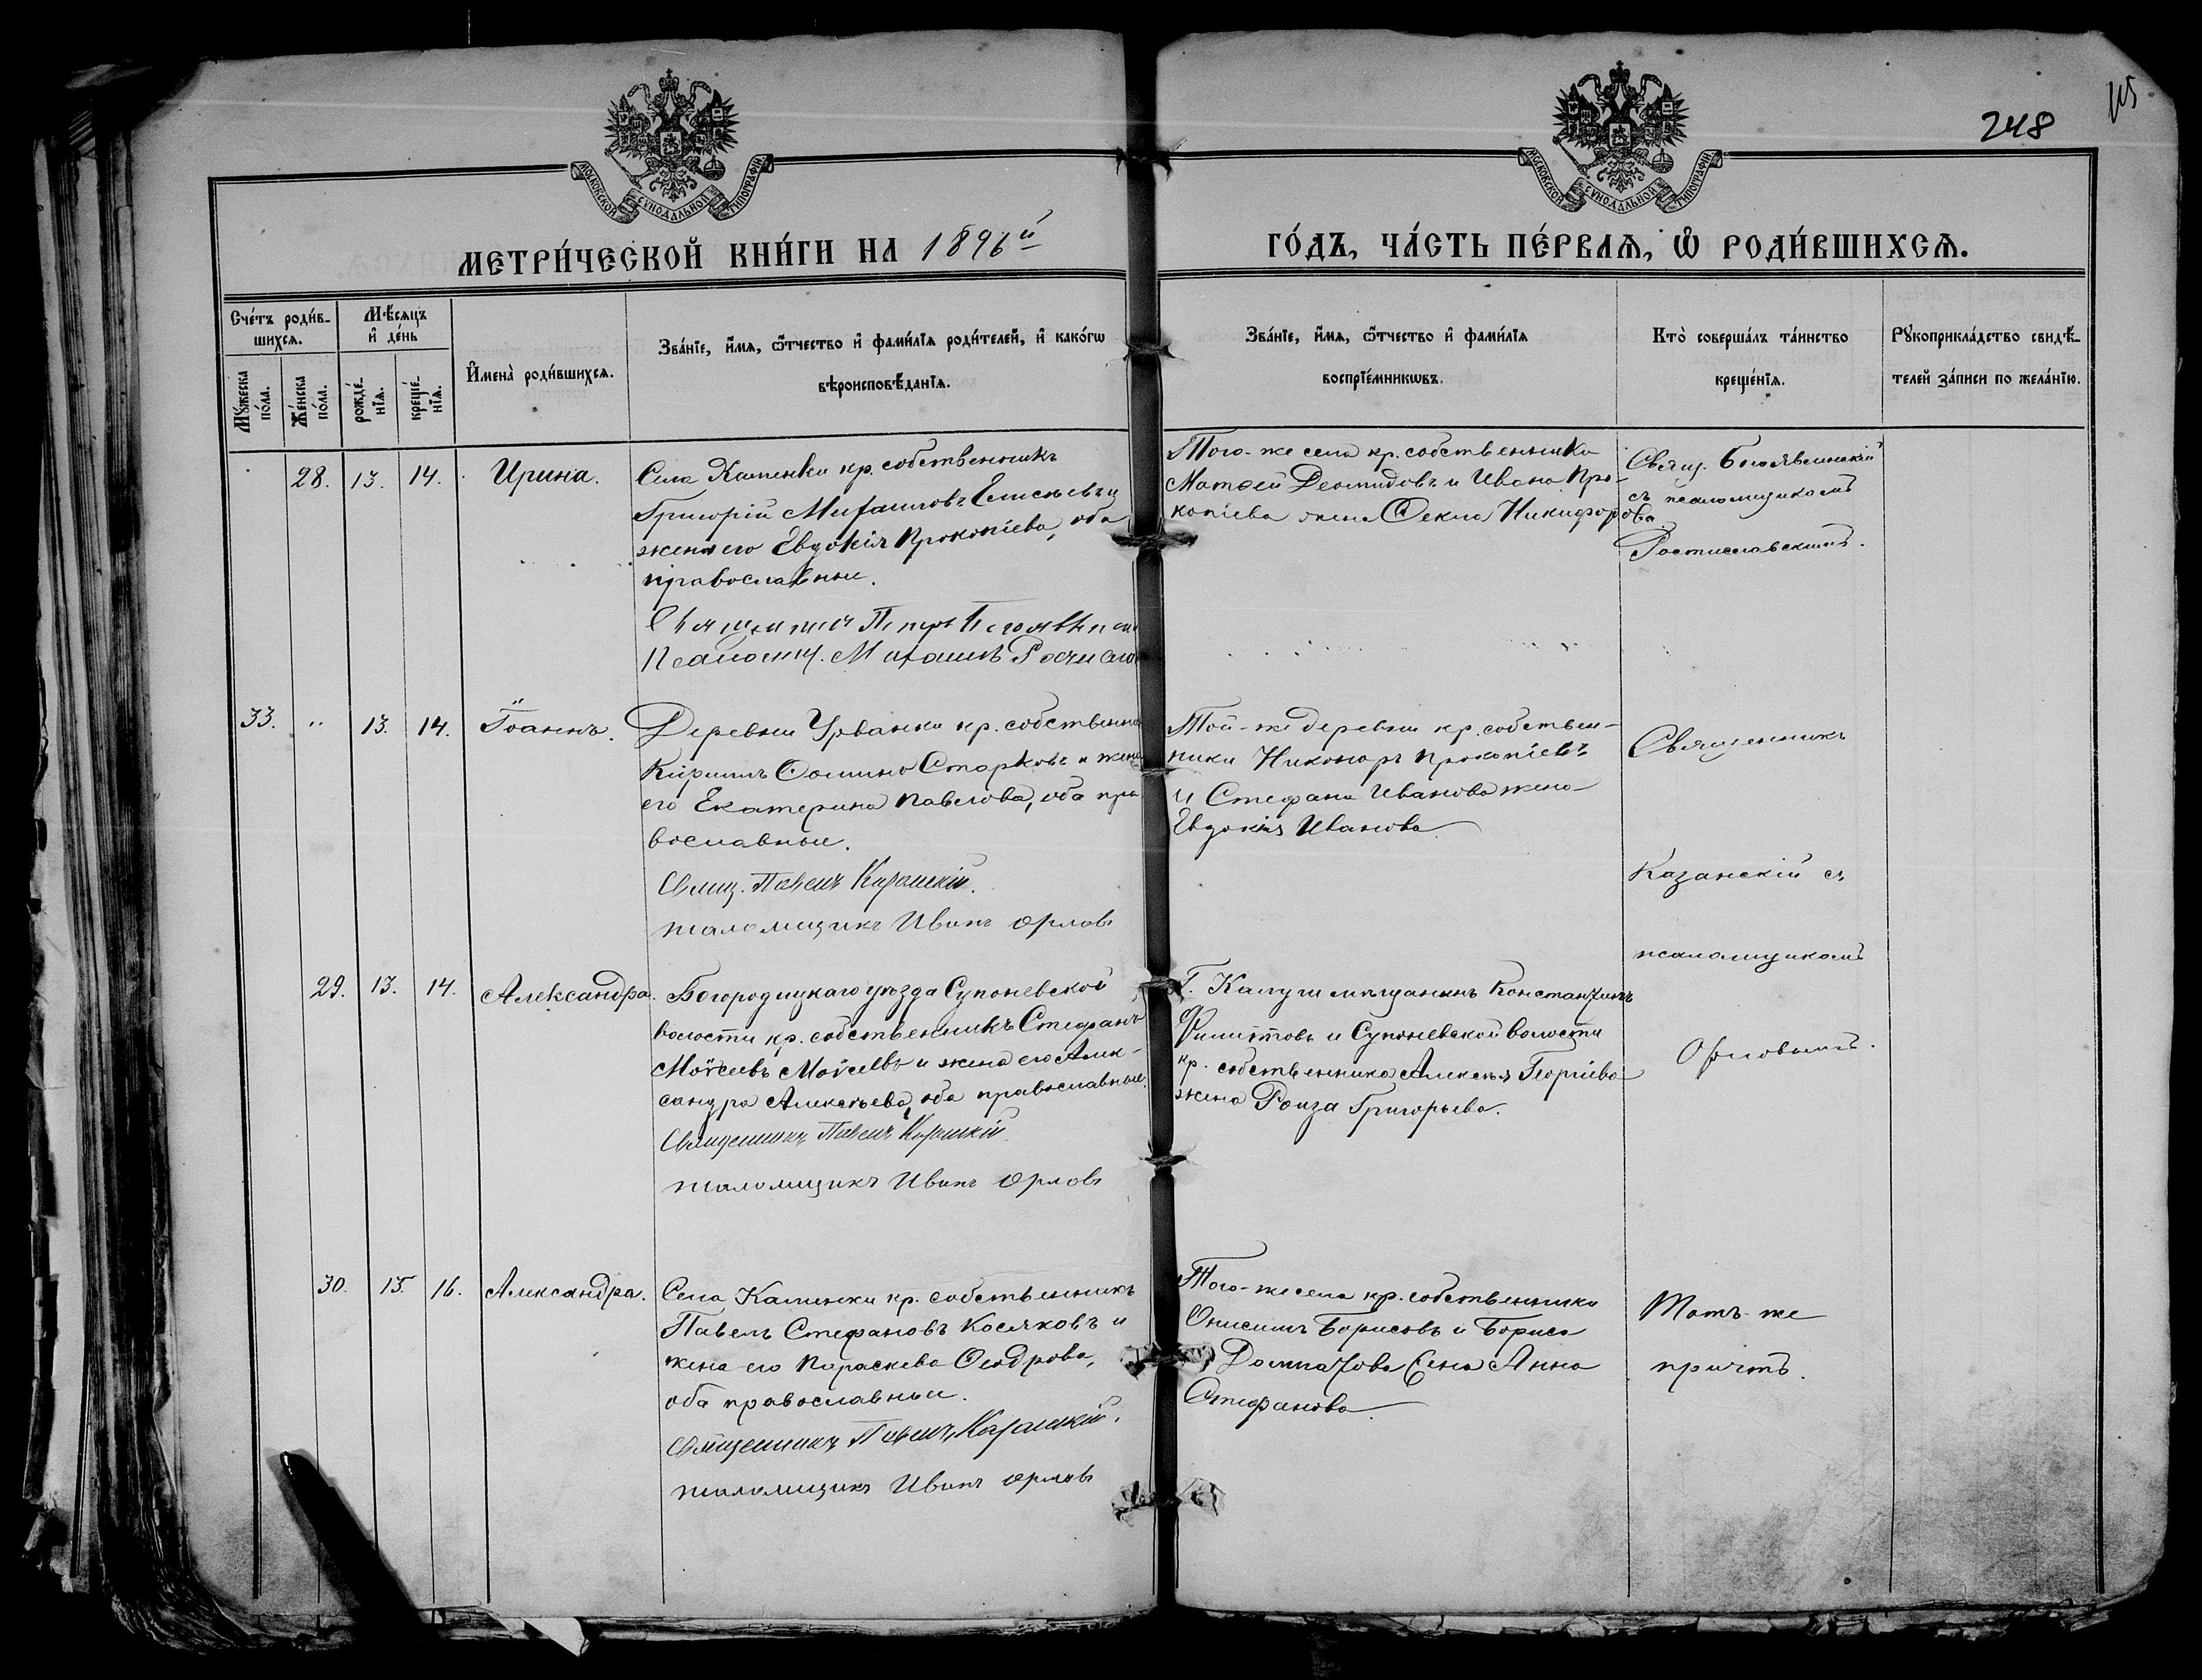 248
115
МОСКОВСКОЙ СѴНОДАЛЬНОЙ ТИПОГРАФІИ
МОСКОВСКОЙ СѴНОДАЛЬНОЙ ТИПОГРАФІИ
МЕТРИ́ЧЕСКОЙ КНИ́ГИ НА 1896й
ГО́ДЪ, ЧА́СТЬ ПЕ́РВАѦ, Ѡ҆ РОДИ́ВШИХСѦ.
Сче́тъ роди́в-
шихсѧ.
Мѣ́сѧцъ
и҆ де́нь
Мꙋ́жеска
по́ла.
Же́нска
по́ла.
рожде́-
нїѧ.
креще́-
нїѧ.
И҆мена̀ роди́вшихсѧ.
Зва́нїе, и҆́мѧ, ѻ҆́тчество и҆ фами́лїѧ роди́телей, и҆ како́гѡ
вѣроисповѣ́данїѧ.
Зва́нїе, и҆́мѧ, ѻ҆́тчество и҆ фами́лїѧ
воспрїе́мникѡвъ.
Кто̀ соверша́лъ та́инство
креще́нїѧ.
Рꙋкоприкла́дство свидѣ́-
телей за́писи по жела́нїю.
28. 13. 14. Ирина.
Села Каменки кр. собственникъ
Григорій Михаиловъ Елисѣевъ и
жена его Евдокія Прокопіева, оба
православные.
Священникъ Петръ
Псаломщ. Михаилъ
Того-же села кр. собственники
Матѳей Деомидовъ и Ивана Про-
копіева жена Ѳекла Никифорова.
Свящ. Богоявленскій
съ псаломщикомъ
Ростиславскимъ.
33. " 13. 14. Іоаннъ.
Деревни Урванки кр. собственни
Кириллъ Ѳомин Старковъ и жена
его Екатерина Павелова, оба пра
вославные.
Свящ. Павелъ Казанскій.
псаломщикъ Иванъ Орловъ
Той-же деревни кр. собствен-
ники Никоноръ Прокопіевъ
и Стефана Иванова жена
Евдокія Иванова
Священникъ
Казанскій съ
псаломщикомъ
Орловымъ.
29. 13. 14. Александра.
Богородицкаго уѣзда Супоневской
волости кр. собственникъ Стефанъ
Моѵсеевъ Моѵсеевъ и жена его Алек-
сандра Алексѣева, оба православные.
Священникъ Павелъ Казанскій
псаломщикъ Иванъ Орловъ
Г. Калуги мѣщанинъ Константинъ
Филиповъ и Супоневской волости
кр. собственника Алексѣя Георгіева
жена Раиза Григорьева.
30. 15. 16. Александра.
Села Каменки кр. собственникъ
Павелъ Стефановъ Косяковъ и
жена его Параскева Ѳеодрова,
оба православные.
Священникъ Павелъ Казанскій.
псаломщикъ Иванъ Орловъ
Того-же села кр. собственники
Онисимъ Борисовъ и Бориса
жена Анна
Стефанова.
Тотъ-же
причтъ.